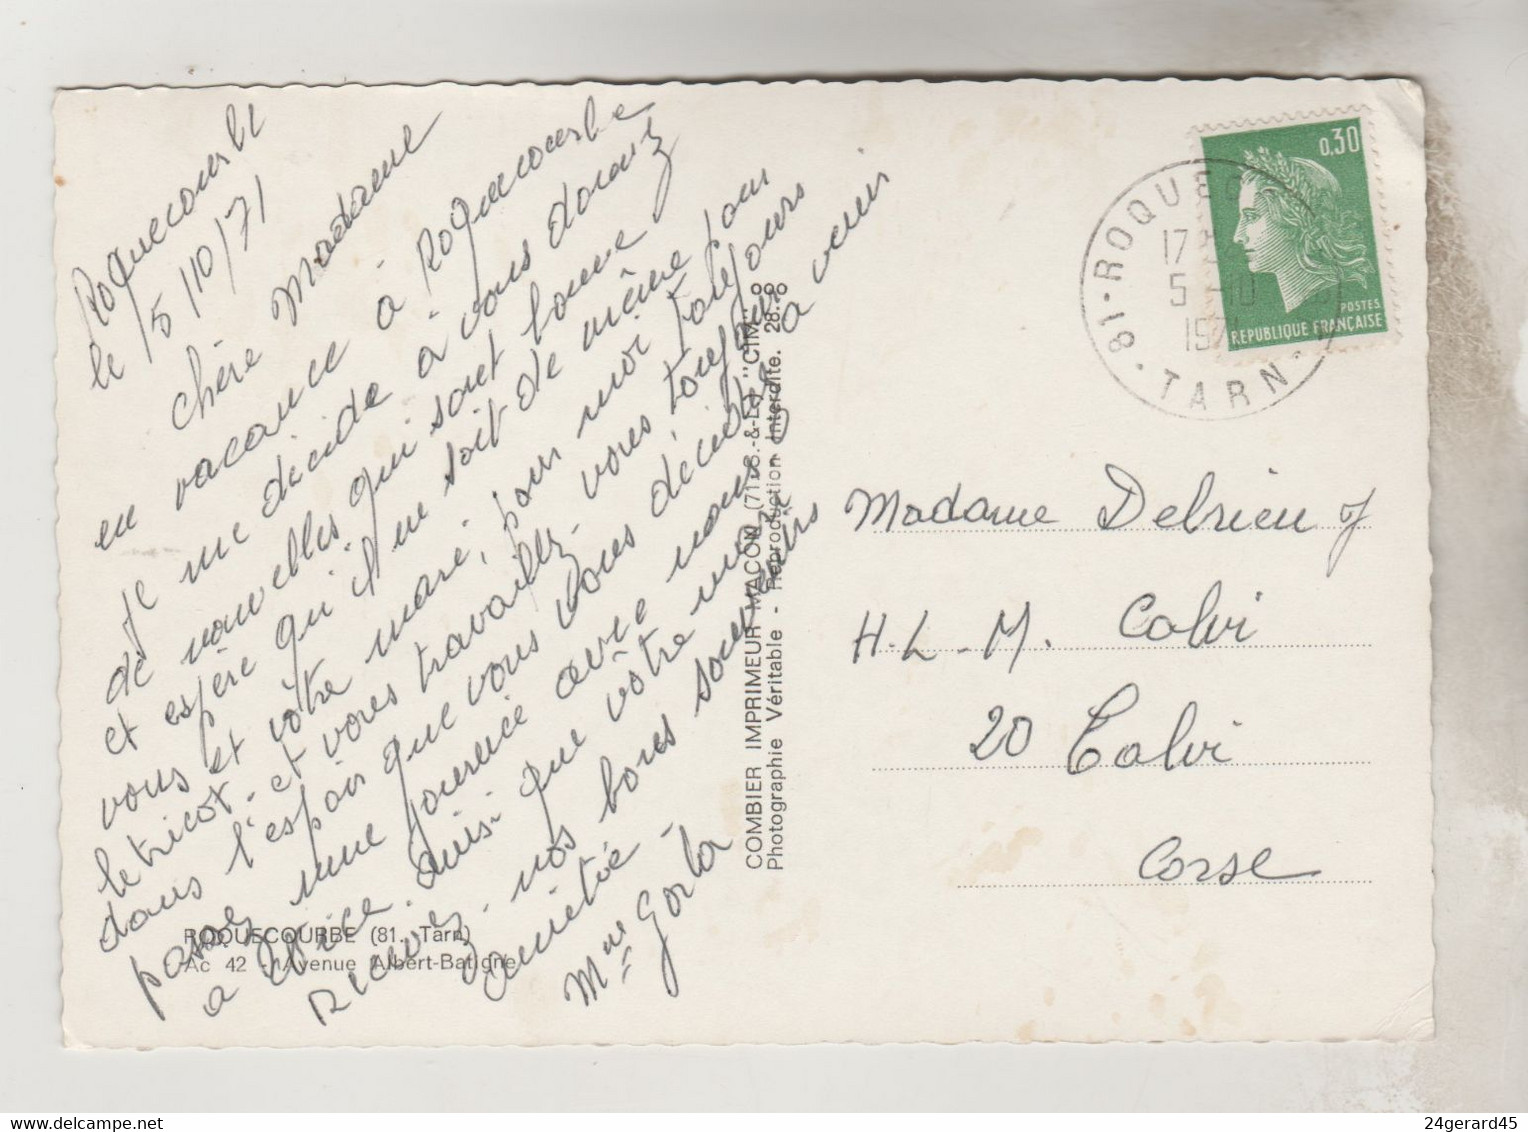 Roquecourbe
le 5/10/71
chère Madame
en vacance à Roquecourbe
Je me décide à vous donnez
de nouvelles qui sont bonne
et espère qu'il en soit de même pour
vous et vôtre mari, pour moi toujours
le tricot et vous travaillez vous toujours
dans l'espoir que vous vous décidez a venir
passez une journée avec nous
a Nice. ainsi que vôtre mari
Recevez nos bons souvenirs
amitié -
Mme Gorla
ROQUECOURBE (81. Tarn)
Ac 42 - Avenue Albert-Batigne
COMBIER IMPRIMEUR MACON (71) S.-&-L. "CIM"
Photographie Véritable - Reproduction Interdite. 28.
0,30
POSTES
REPUBLIQUE FRANÇAISE
81 - ROQUEC
17
5 - 10
1971
TARN
Madame Delrieu J
H.L.M. Calvi
20 Calvi
Corse
24gerard45